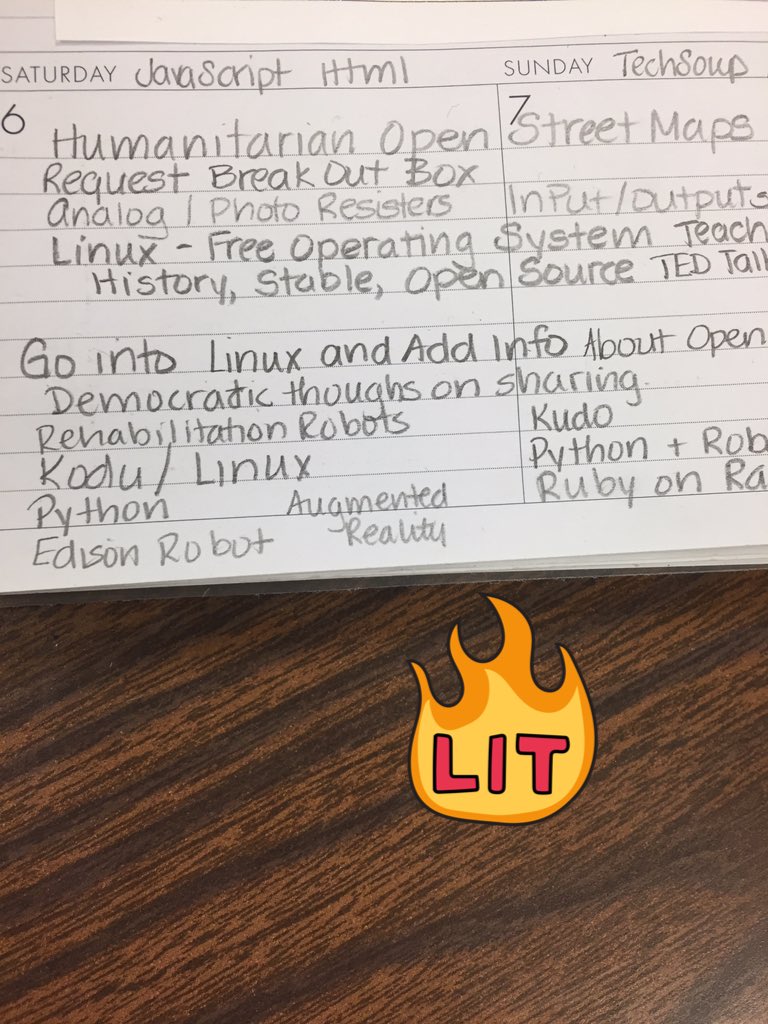 SATURDAY JavaScript Html SUNDAY TechSoup
6 7
Humanitarian Open Street Maps
Request Break Out Box
Analog / Photo Resisters Input/Outputs
Linux - Free Operating System Teach
History, Stable, Open Source TED Talk
Go into Linux and Add Info About Open
Democratic thoughs on sharing.
Rehabilitation Robots Kudo
Kodu / Linux Python + Rob
Python Augmented Ruby on Ra
Reality
Edison Robot
LIT